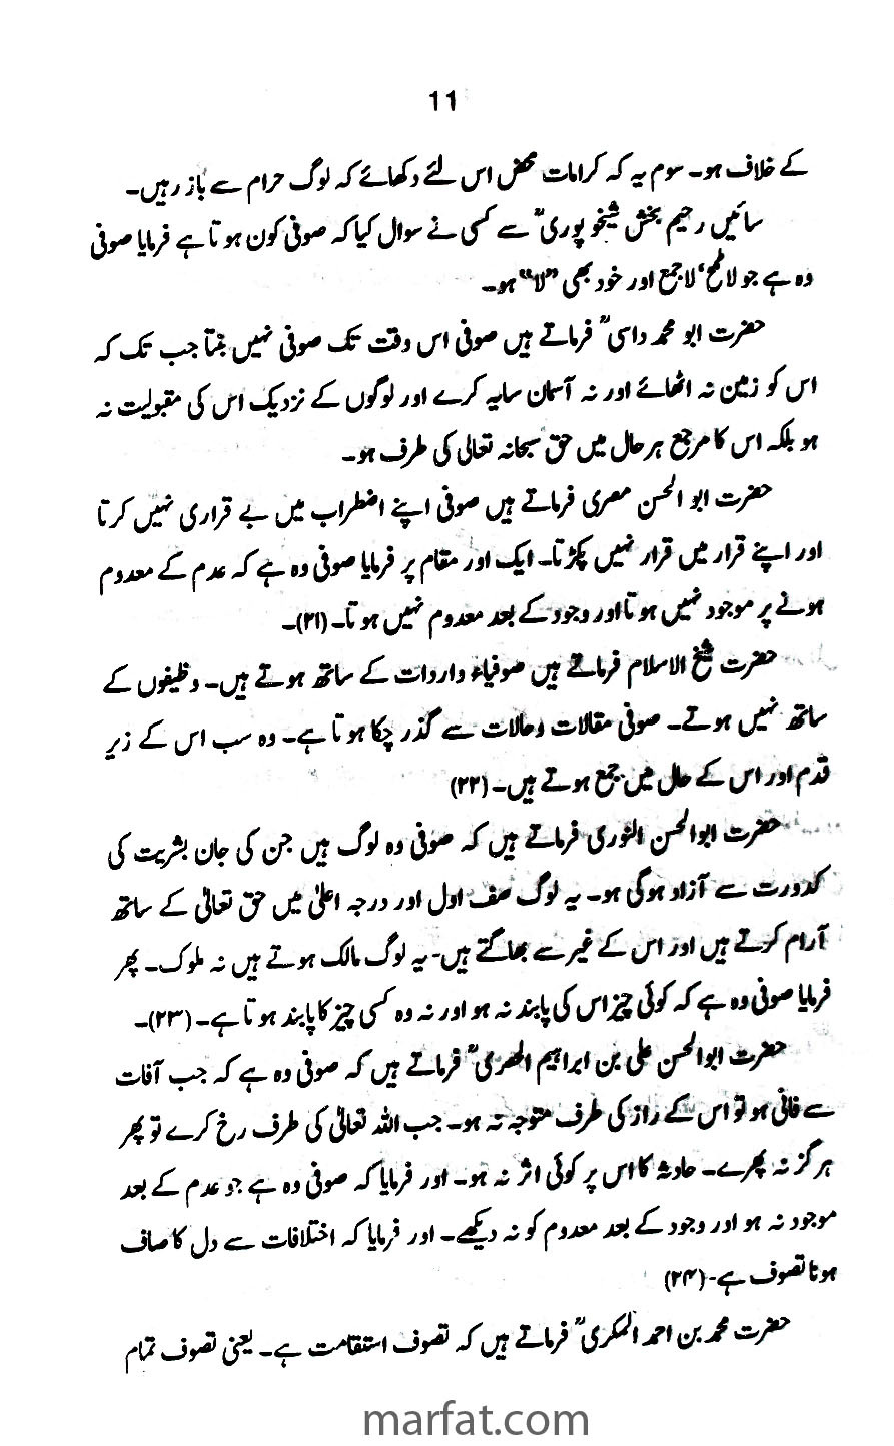 11
کے خلاف ہو۔ سوم یہ کہ کرامات محض اس لئے دکھائے کہ لوگ حرام سے باز رہیں۔
سائیں رحیم بخش شیخوپوریؒ سے کسی نے سوال کیا کہ صوفی کون ہوتا ہے فرمایا صوفی
وہ ہے جو لا طمع، لا جمع اور خود بھی "لا" ہو۔
حضرت ابو محمد داسیؒ فرماتے ہیں صوفی اس وقت تک صوفی نہیں بنتا جب تک کہ
اس کو زمین نہ اٹھائے اور نہ آسمان سایہ کرے اور لوگوں کے نزدیک اس کی مقبولیت نہ
ہو بلکہ اس کا مرجع ہر حال میں حق سبحانہ تعالی کی طرف ہو۔
حضرت ابو الحسن مصری فرماتے ہیں صوفی اپنے اضطراب میں بے قراری نہیں کرتا
اور اپنے قرار میں قرار نہیں پکڑتا۔ ایک اور مقام پر فرمایا صوفی وہ ہے کہ عدم کے معدوم
ہونے پر موجود نہیں ہوتا اور وجود کے بعد معدوم نہیں ہوتا۔ (۲۱)۔
حضرت شیخ الاسلام فرماتے ہیں صوفیاء واردات کے ساتھ ہوتے ہیں۔ وظیفوں کے
ساتھ نہیں ہوتے۔ صوفی مقالات وحالات سے گذر چکا ہوتا ہے۔ وہ سب اس کے زیر
قدم اور اس کے حال میں جمع ہوتے ہیں۔ (۲۲)
حضرت ابوالحسن النوری فرماتے ہیں کہ صوفی وہ لوگ ہیں جن کی جان بشریت کی
کدورت سے آزاد ہوگی ہو۔ یہ لوگ صف اول اور درجہ اعلیٰ میں حق تعالیٰ کے ساتھ
آرام کرتے ہیں اور اس کے غیر سے بھاگتے ہیں۔ یہ لوگ مالک ہوتے ہیں نہ ملوک۔ پھر
فرمایا صوفی وہ ہے کہ کوئی چیز اس کی پابند نہ ہو اور نہ وہ کسی چیز کا پابند ہوتا ہے۔ (۲۳)۔
حضرت ابوالحسن علی بن ابراہیم الحصریؒ فرماتے ہیں کہ صوفی وہ ہے کہ جب آفات
سے فانی ہو تو اس کے راز کی طرف متوجہ نہ ہو۔ جب اللہ تعالیٰ کی طرف رخ کرے تو پھر
ہرگز نہ پھرے۔ حادثہ کا اس پر کوئی اثر نہ ہو۔ اور فرمایا کہ صوفی وہ ہے جو عدم کے بعد
موجود نہ ہو اور وجود کے بعد معدوم کو نہ دیکھے۔ اور فرمایا کہ اختلافات سے دل کا صاف
ہونا تصوف ہے۔ (۲۴)
حضرت محمد بن احمد المکریؒ فرماتے ہیں کہ تصوف استقامت ہے۔ یعنی تصوف تمام
marfat.com